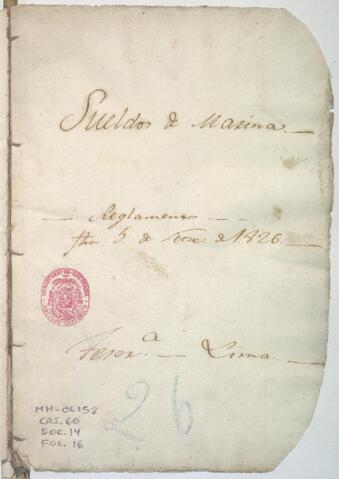 Sueldos de Marina.
Reglamento
fho 5. de de 1826
Tesor.a Lima.
26
MH-OL152
CAJ. 60
DOC. 14
FOL. 16